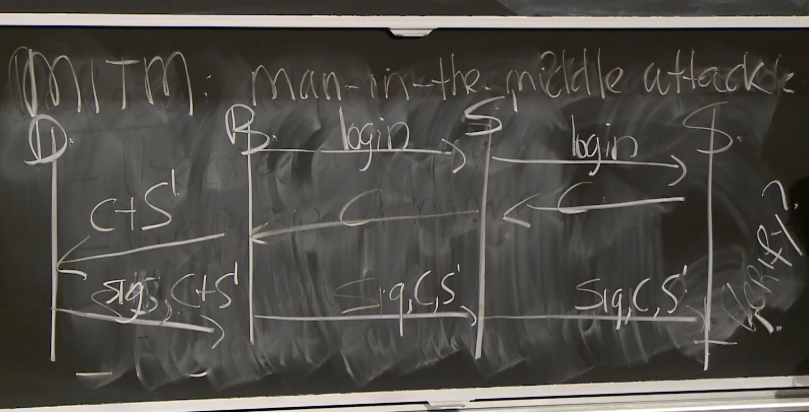 MITM: man-in-the-middle attack
D. B. S' S.
login login
C+S' C C
sig, C+S' Sig,C,S' Sig,C,S'
verify?